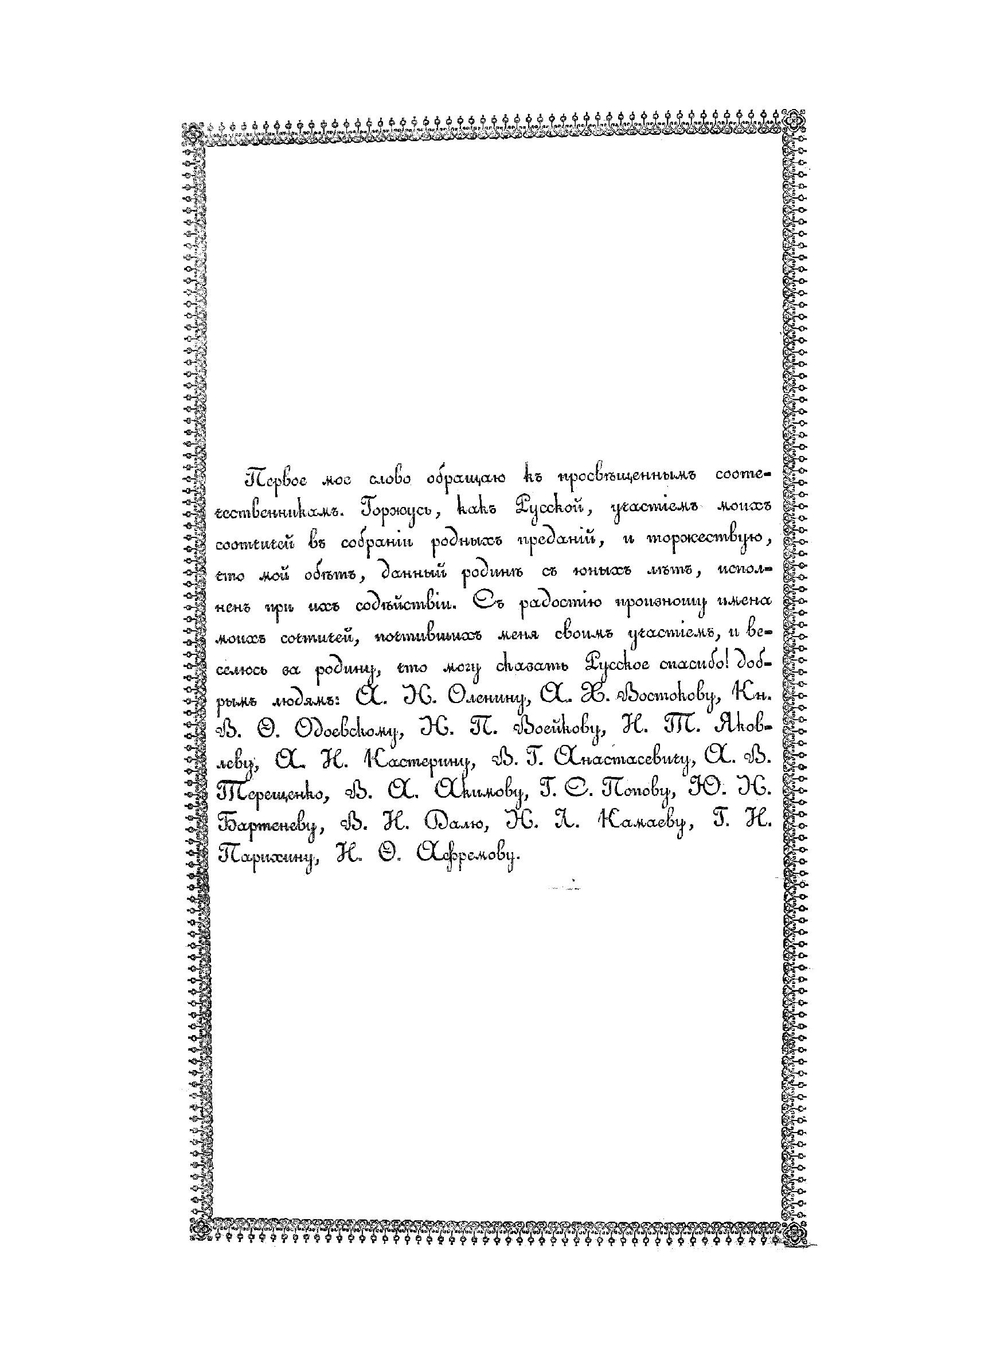 Первое мое слово обращаю къ просвѣщеннымъ сооте-
чественникамъ. Горжусь, какъ Русской, участіемъ моихъ
сочтителй въ собраніи родныхъ преданій, и торжествую,
что мой обѣтъ, данный родинѣ съ юныхъ лѣтъ, испол-
ненъ при ихъ содѣйствіи. Съ радостію произношу имена
моихъ сочтителй, почтившихъ меня своимъ участіемъ, и ве-
селюсь за родину, что могу сказать Русское спасибо! доб-
рымъ людямъ: А. Н. Оленину, А. Х. Востокову, Кн.
В. Ѳ. Одоевскому, Н. П. Воейкову, И. Т. Яков-
леву, А. И. Кастерину, В. Г. Анастасевичу, А. В.
Терещенко, В. А. Акимову, Г. С. Попову, Ю. Н.
Бартеневу, В. И. Далю, Н. Л. Камаеву, Г. И.
Парихину, И. Ѳ. Афремову.